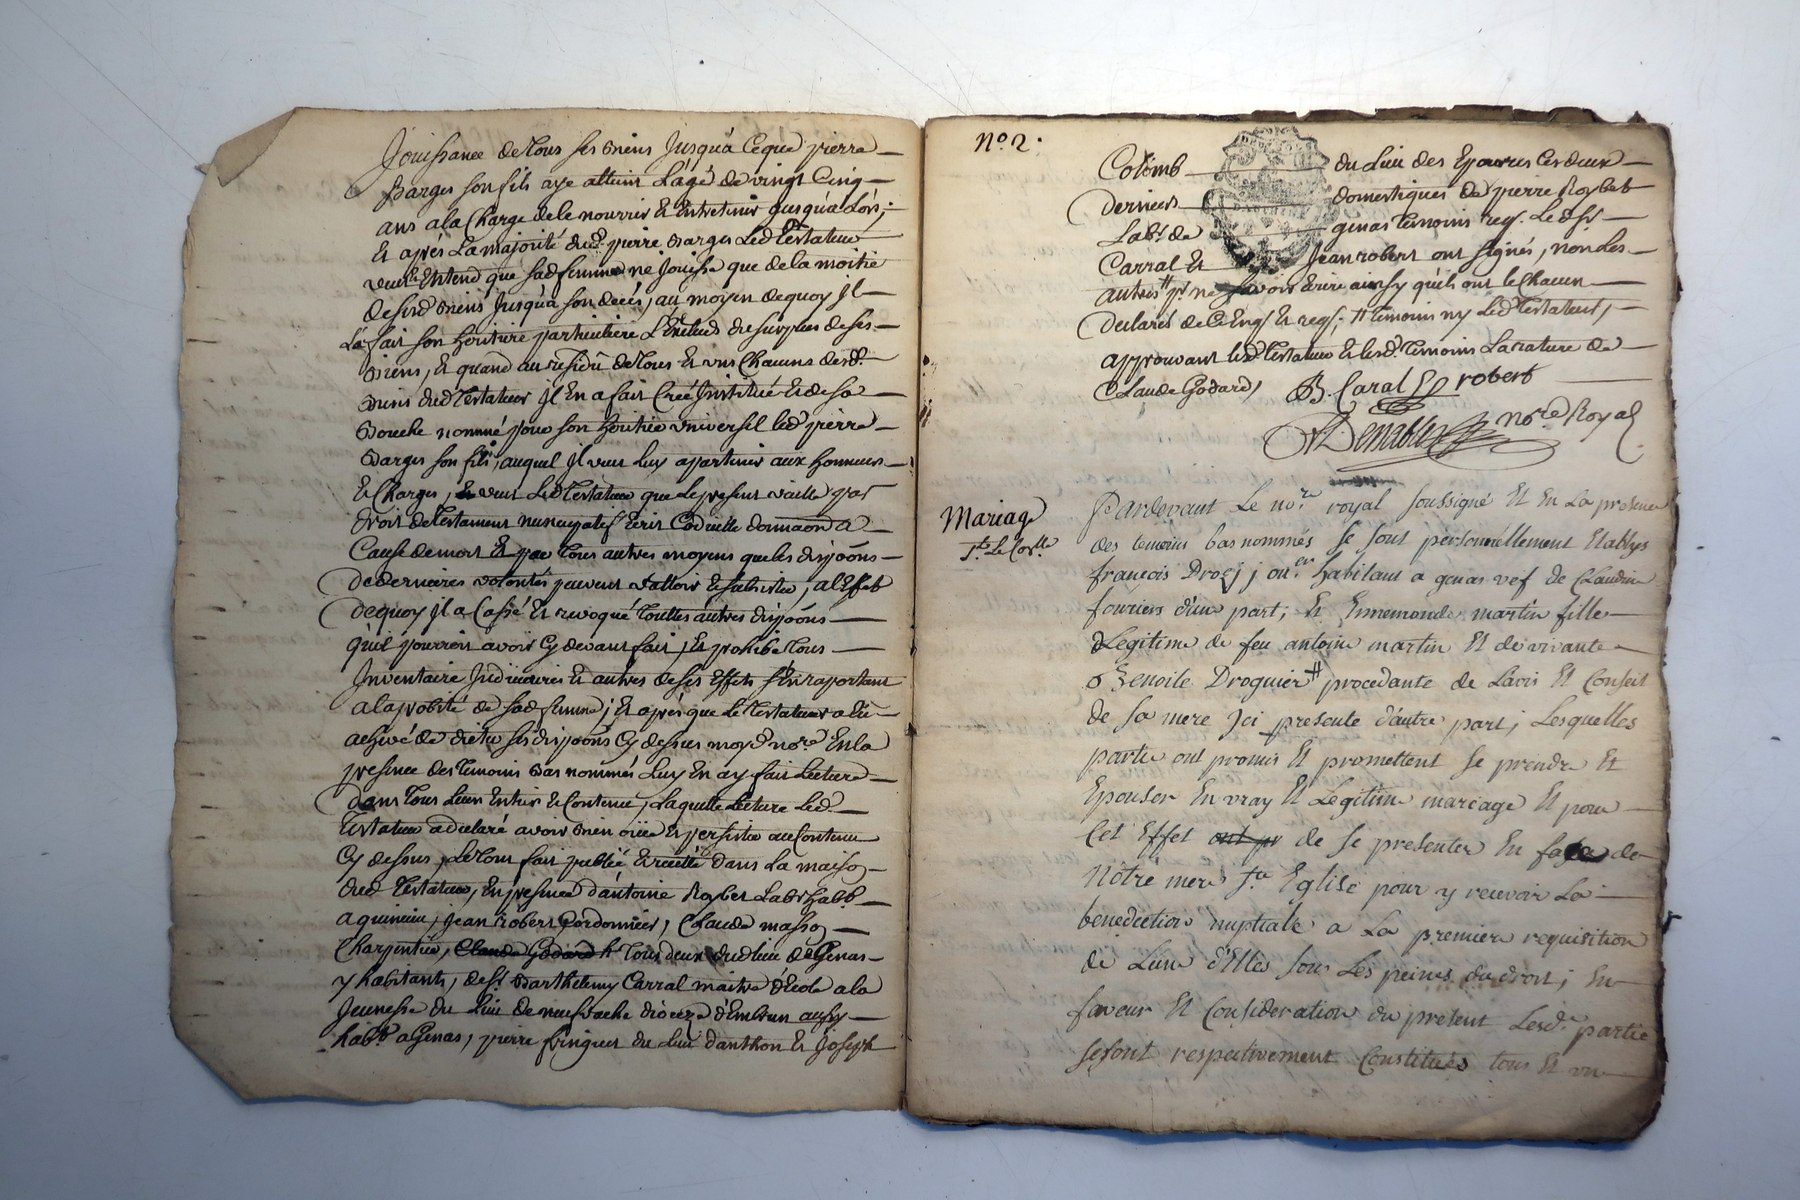 Jouissance de tous ses biens Jusqu'a Ce que pierre
Barges son fils aye atteint L'age de vingt Cinq
ans a la Charge de le nourrir Et Entretenir jusqu'a Lors,
Et après La majorité dud. pierre Barges Led Testateur
veut Et Entend que sad femme ne Jouisse que de la moitié
desd biens Jusqu'a son decés, au moyen de quoy Il
L'a fait son héritiere particuliere de ses
Biens, Et quand au residû de tous Et uns Chacuns desd.
Biens dud Testateur Il En a fait Créé Institué Et de sa
Bouche nommé pour son héritier universel led pierre
Barges son fils, auquel Il veut apartenir aux honneurs
Et Charges, veut Led Testateur que Le present vaille par
droit de Testament nuncupatif Ecrit Codicille donnaõn a
Cause de mort Et par tous autres moyens que les dispõons
de dernieres volontés peuvent valloir Et subsister, a l'Effet
de quoy Il a Cassé Et revoqué touttes autres dispõons
qu'il pourroit avoir Cy devant fait, Et prohibe tous
Inventaire Judiciaires Et autres de ses Effets s'En raportant
a la probité de sad femme; Et après que Le Testateur a Eu
achevé de dicter ses dispõons Cy dessus moyd nore. En la
presence des temoins Bas nommés Luy En ay fait Lecture
dans tout leur Entier Et Contenu, Laquelle Lecture Led.
Testateur a declaré avoir Bien oüie Et persister au Contenu
Cy dessus, Le tout fait publié Et recitté dans La maison
dud Testateur, En presence d'antoine Roybet Labr hab.
a quincieu, jean Robert Cordonnier, Claude masson
Charpentier, Claude Godard tous deux dud lieu de Genas
y habitants, de sr. Barthelemy Carral maitre d'Ecole a la
Jeunesse du Lieu de neufvache dioceze d'Embrun aussy
habt. a Genas, pierre fringuet du Lieu d'anthon Et Joseph
No. 2.
Colomb du Lieu des Eparres Ces deux
derniers domestiques de pierre Roybet
Labr. de genas temoins reqs. Led sr.
Carral Et Jean robert ont signés, non Les
autres pr. ne Savoir Ecrire ainsy qu'ils ont le Chacun
declarés de Ce Enqs Et reqs; # temoins ny Led Testateur,
approuvant led Testateur Et lesd. temoins La rature de
Claude Godard, B. Caral robert
Denable nore. Royal
Mariage
Pardevant Le nore. royal soussigné Et En La presence
des temoins bas nommés se sont personnellement Etablys
françois Habitant a genas vef de Claudine
fouriers d'une part; Et Ennemonde martin fille
Legitime de feu antoine martin Et de vivante
Benoite Droguier # procedante de Lavis Et Conseil
de Sa mere Jci presente d'autre part; Lesquelles
partie ont promis Et promettent se prendre Et
Epouser En vray Et Legitime mariage Et pour
Cet Effet ont pr de se presenter En face de
Nôtre mere Ste Eglise pour y recevoir La
benediction nuptiale a La premiere requisition
de L'une d'Elles sous Les peines du droit; En
faveur Et Consideration du present Lesd. partie
se sont respectivement Constituées tous Et un